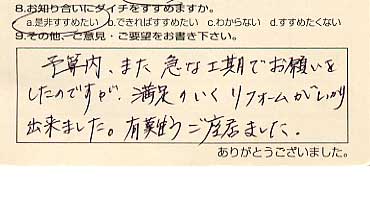 8.お知り合いにダイチをすすめますか。
a.是非すすめたい b.できればすすめたい c.わからない d.すすめたくない
9.その他、ご意見・ご要望をお書き下さい。
予算内、また 急な工期でお願いを
したのですが、満足のいく リフォームがしっかり
出来ました。有難うご座居ました.
ありがとうございました。